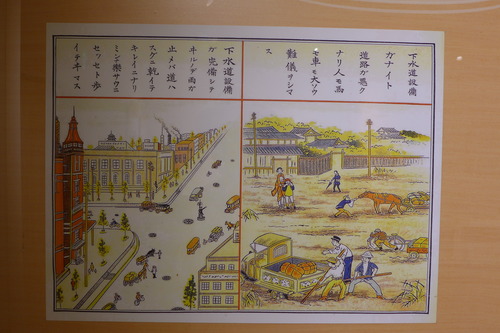 下水道設備
ガナイト
道路ガ悪ク
ナリ人モ馬
モ車モ大ソウ
難儀ヲシマ
ス
下水道設備
ガ完備シテ
ヰルノデ雨ガ
止メバ道ハ
スグニ乾イテ
キレイニナリ
ミンナ楽サウニ
セッセト歩
イテヰマス